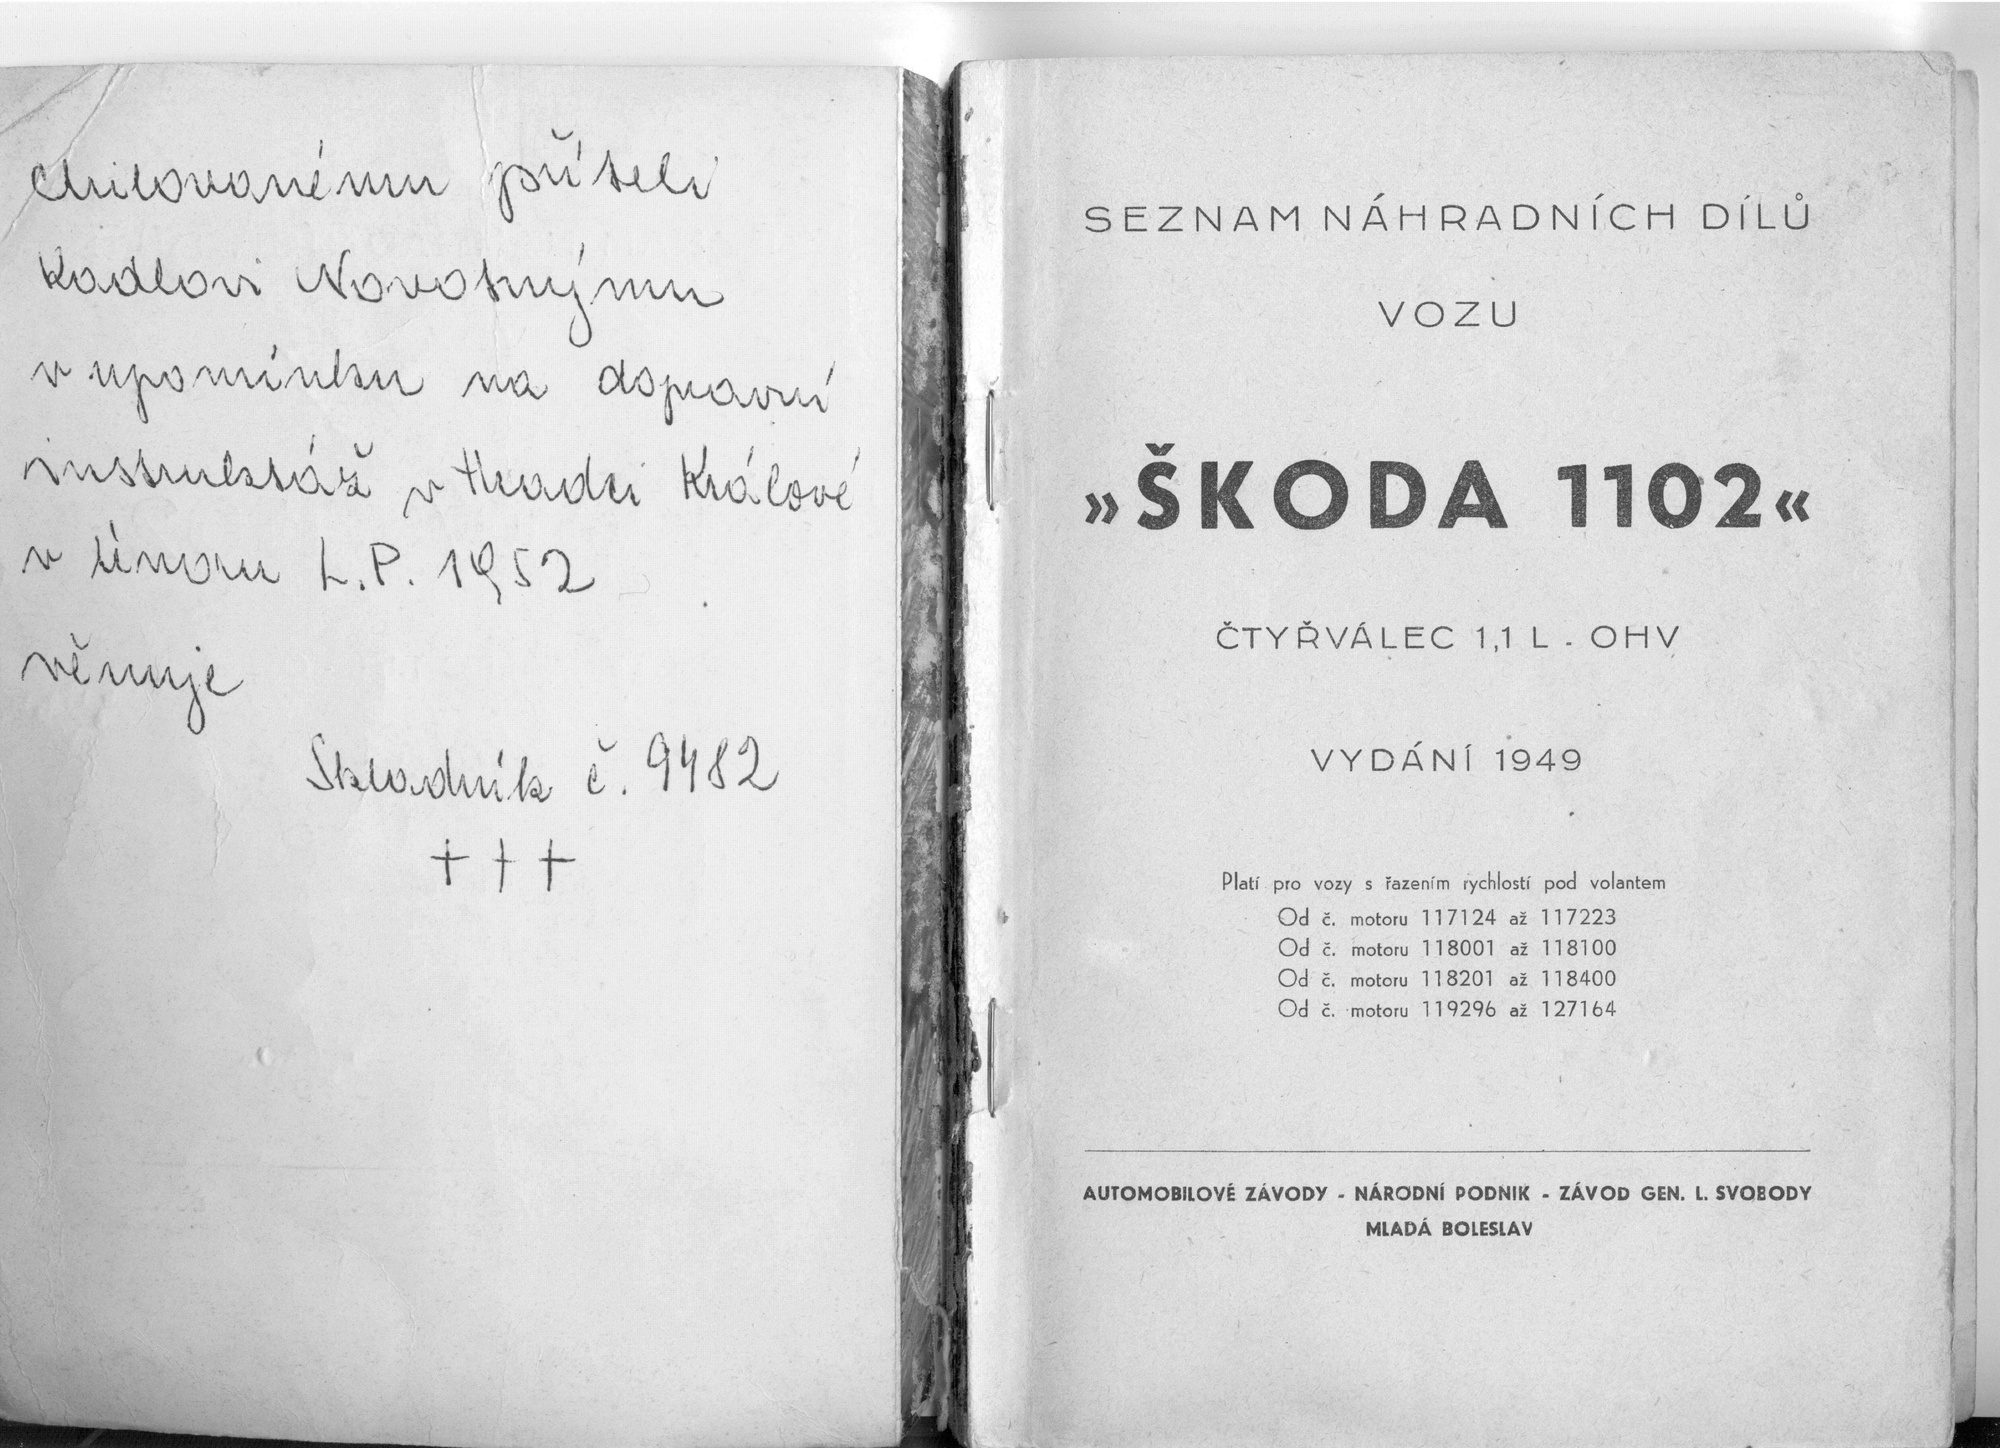 Milovanému příteli
Kadlovi Novotnýmu
v upomínku na dopravní
instruktáž v Hradci Králové
v únoru L.P. 1952
věnuje
Skladník č. 9482
+++
SEZNAM NÁHRADNÍCH DÍLŮ
VOZU
»ŠKODA 1102«
ČTYŘVÁLEC 1,1 L - OHV
VYDÁNÍ 1949
Platí pro vozy s řazením rychlostí pod volantem
Od č. motoru 117124 až 117223
Od č. motoru 118001 až 118100
Od č. motoru 118201 až 118400
Od č. motoru 119296 až 127164
AUTOMOBILOVÉ ZÁVODY - NÁRODNÍ PODNIK - ZÁVOD GEN. L. SVOBODY
MLADÁ BOLESLAV